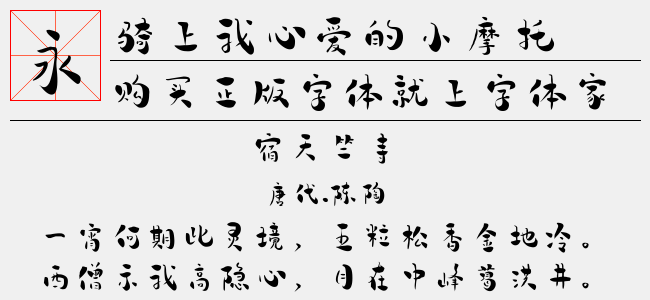 永
骑上我心爱的小摩托
购买正版字体就上字体家
宿天竺寺
唐代.陈陶
一宵何期此灵境，五粒松香金地冷。
西僧示我高隐心，月在中峰葛洪井。